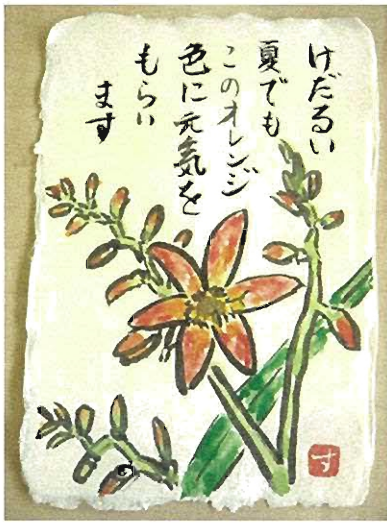 けだるい
夏でも
このオレンジ
色に元気を
もらい
ます
す